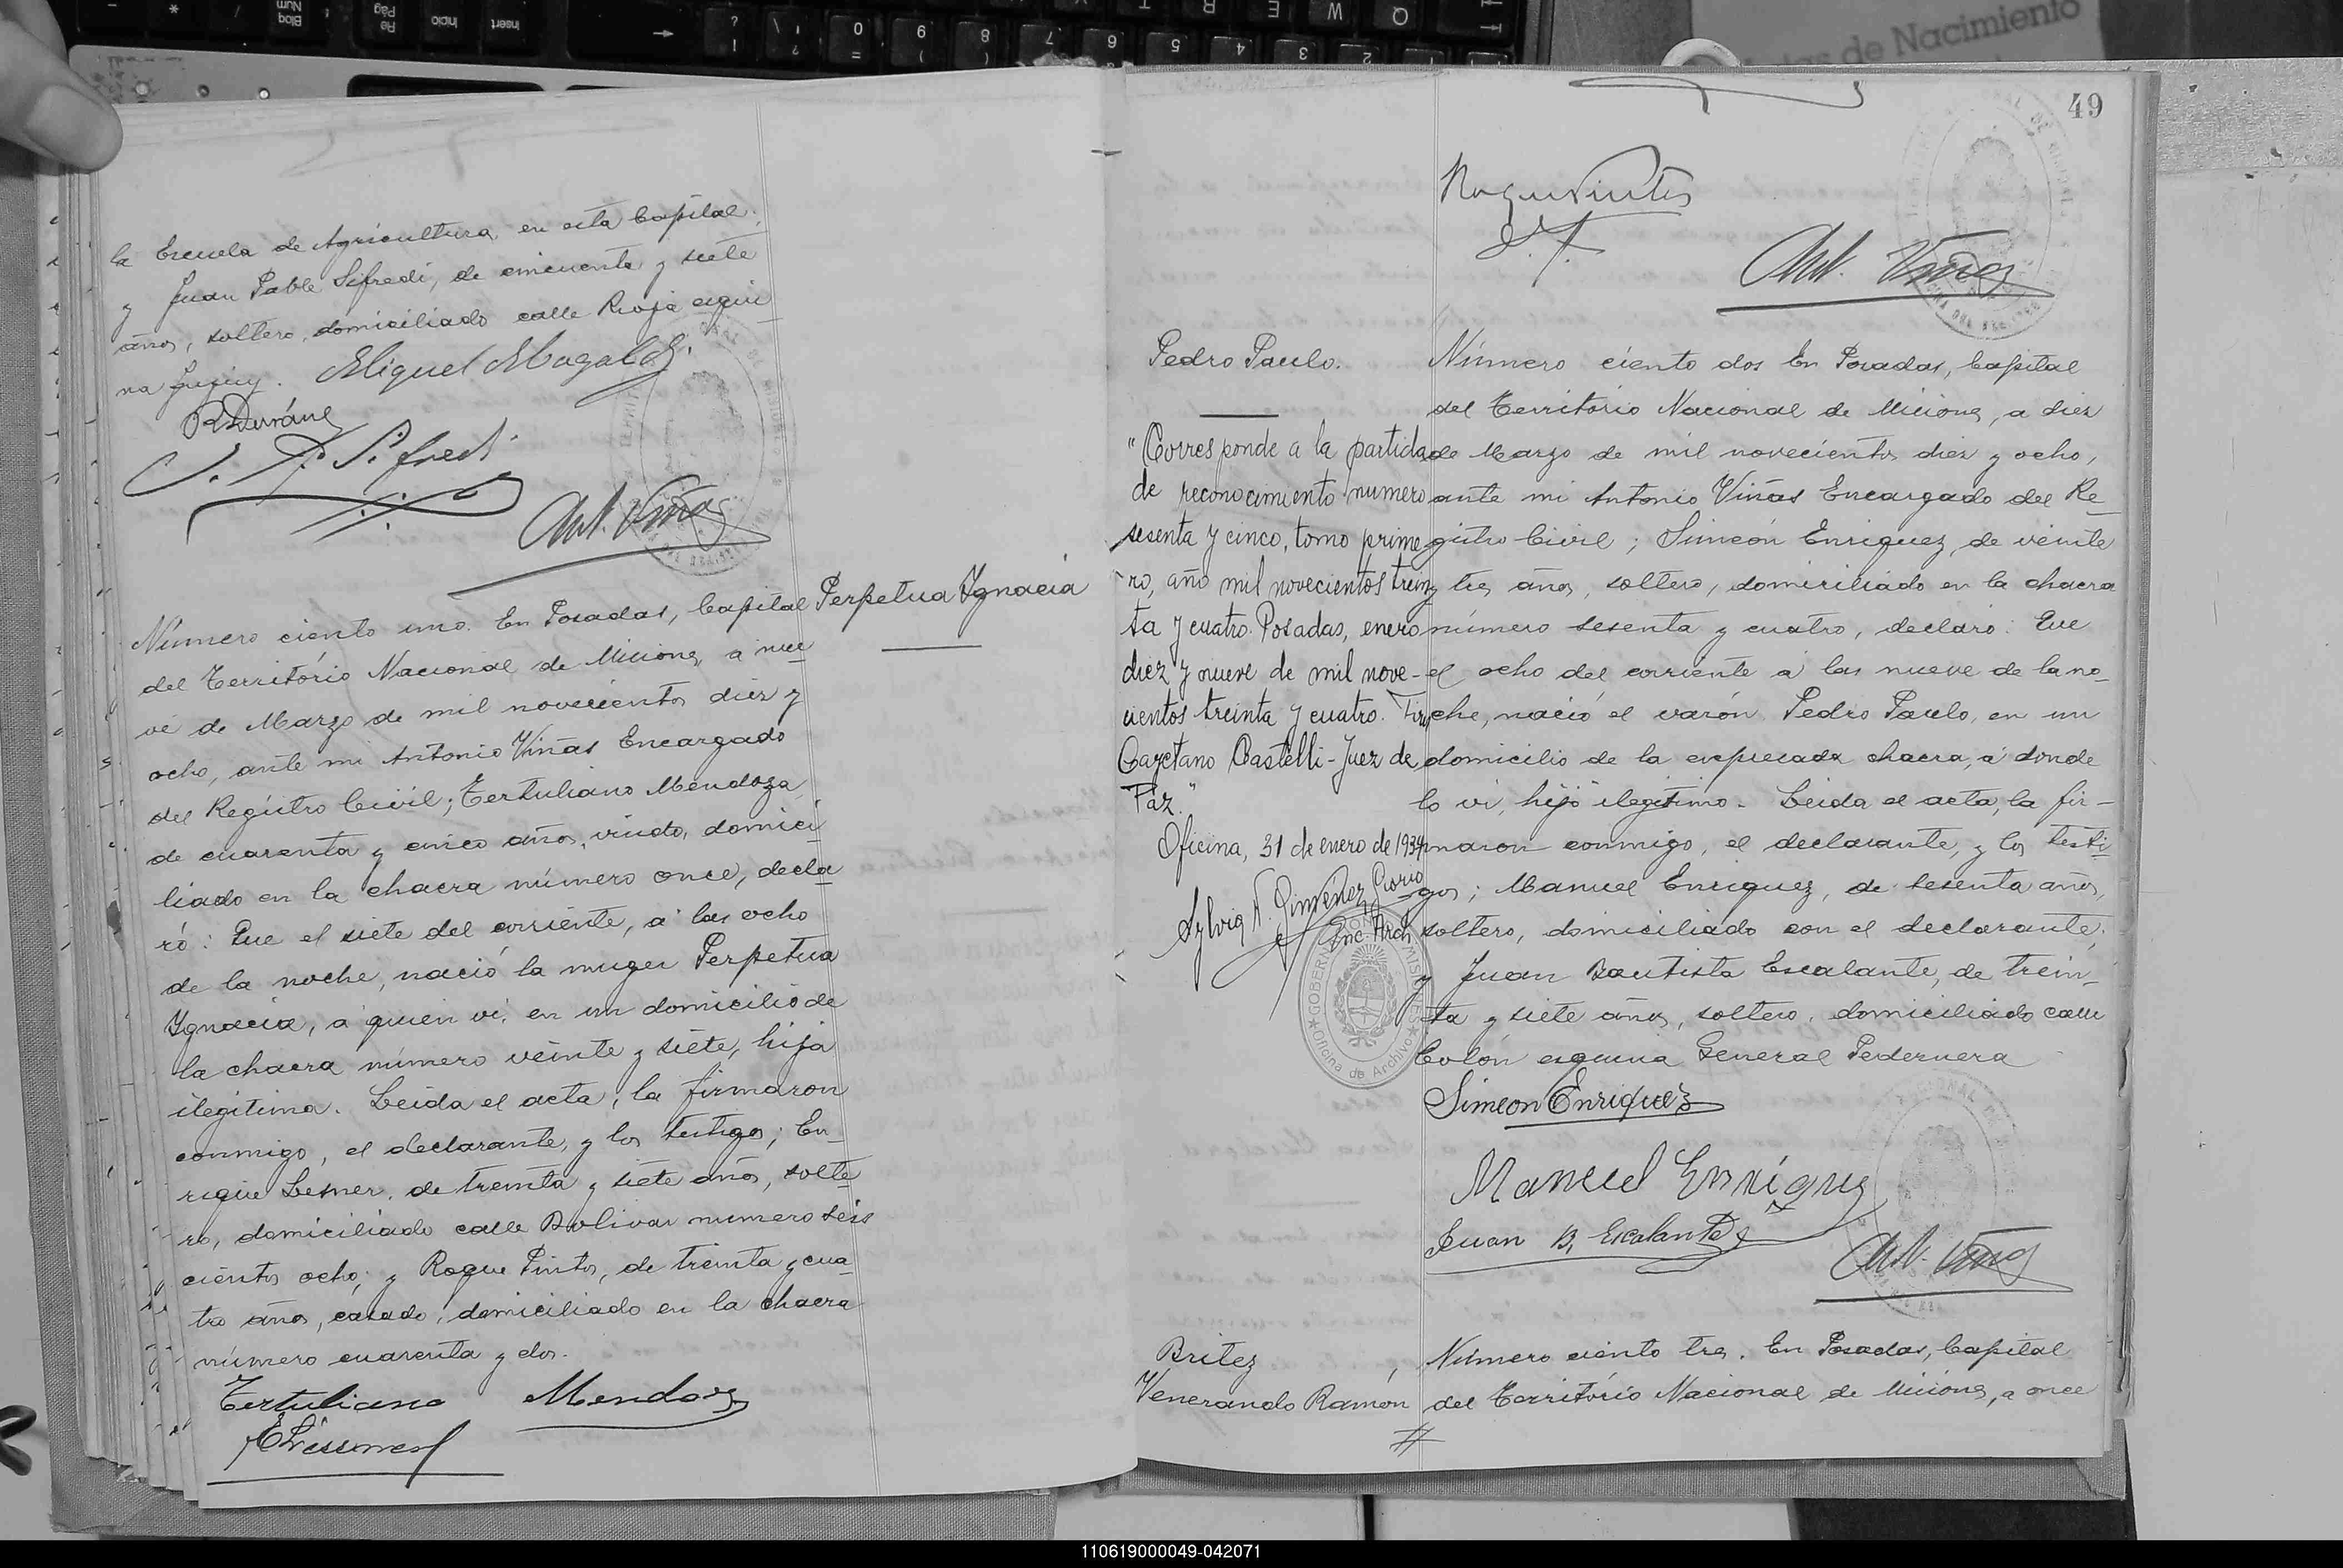 la Escuela de Agricultura en esta Capital,
y Juan Pablo Sifredi, de cincuenta y siete
años, soltero, domiciliado calle Rioja esqui-
na Jujuy. Miguel Magaldi.
J. P. Sifredi
Ant. Viñas
Perpetua Ygnacia
Número ciento uno. En Posadas, Capital
del Território Nacional de Misiones, a nue-
ve de Marzo de mil novecientos diez y
ocho, ante mi Antonio Viñas Encargado
del Registro Civil; Tertuliano Mendoza,
de cuarenta y cinco años, viudo, domici-
liado en la chacra número once, decla-
ró: Que el siete del corriente, a las ocho
de la noche, nació la muger Perpetua
Ygnacia, a quien vi, en un domicilio de
la chacra número veinte y siete, hija
ilegítima. Leida el acta, la firmaron
conmigo, el declarante, y los testigos; En-
rique Lesner, de treinta y siete años, solte-
ro, domiciliado calle Bolivar numero seis
cientos ocho; y Roque Pintos, de treinta y cua-
tro años, casado, domiciliado en la chacra
número cuarenta y dos.
Tertuliano Mendoza
49
Roque Pintos
Ant. Viñas
Pedro Paulo.
"Corresponde a la partida
de reconocimiento numero
sesenta y cinco, tomo prime
ro, año mil novecientos trein
ta y cuatro. Posadas, enero
diez y nueve de mil nove-
cientos treinta y cuatro. Firm
Cayetano Castelli - Juez de
Paz."
Oficina, 31 de enero de 1934
Sylvia N. Giménez Osorio
Enc. Arch
GOBERNACION MISIONES
Oficina de Archivo
Número ciento dos En Posadas, Capital
del Território Nacional de Misiones, a diez
de Marzo de mil novecientos diez y ocho,
ante mi Antonio Viñas Encargado del Re-
gistro Civil; Simeón Enriquez, de veinte
y tres años, soltero, domiciliado en la chacra
número sesenta y cuatro, declaró: Que
el ocho del corriente a las nueve de la no-
che, nació el varón Pedro Paulo, en un
domicilio de la expresada chacra, a donde
lo vi, hijo ilegítimo. Leida el acta, la fir-
maron conmigo, el declarante, y los testi-
gos; Manuel Enriquez, de sesenta años,
soltero, domiciliado con el declarante;
y Juan Bautista Escalante, de trein-
ta y siete años, soltero, domiciliado calle
Colón esquina General Pedernera
Simeon Enriquez
Manuel Enriquez
Juan B. Escalante
Ant. Viñas
Britez
Venerando Ramón
Número ciento tres. En Posadas, Capital
del Território Nacional de Misiones, a once
110619000049-042071